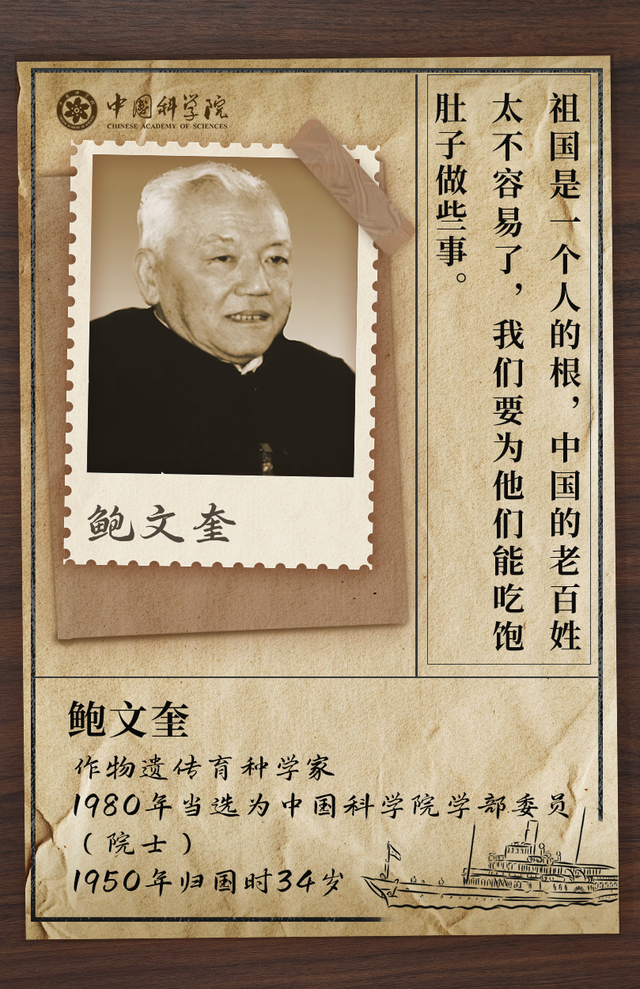 中国科学院
CHINESE ACADEMY OF SCIENCES
祖国是一个人的根，中国的老百姓
太不容易了，我们要为他们能吃饱
肚子做些事。
鲍文奎
鲍文奎
作物遗传育种学家
1980年当选为中国科学院学部委员
（院士）
1950年归国时34岁